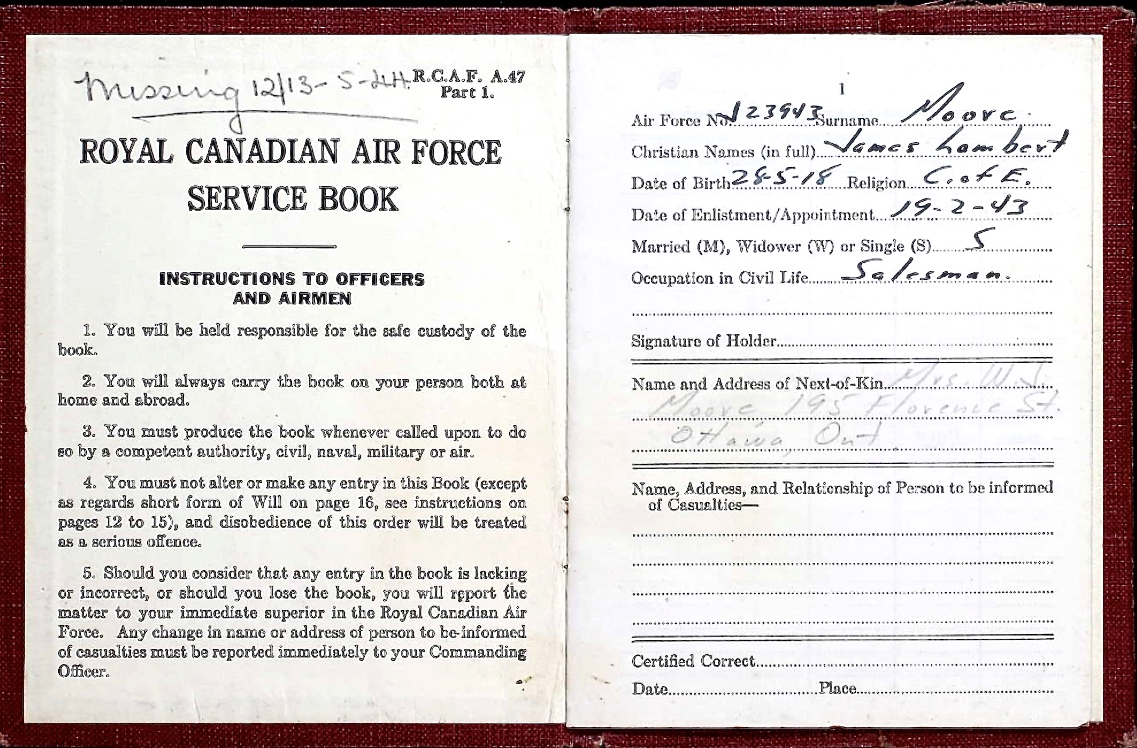 Missing 12/13-5-44.
R.C.A.F. A.47
Part 1.
ROYAL CANADIAN AIR FORCE
SERVICE BOOK
INSTRUCTIONS TO OFFICERS
AND AIRMEN
1. You will be held responsible for the safe custody of the
book.
2. You will always carry the book on your person both at
home and abroad.
3. You must produce the book whenever called upon to do
so by a competent authority, civil, naval, military or air.
4. You must not alter or make any entry in this Book (except
as regards short form of Will on page 16, see instructions on
pages 12 to 15), and disobedience of this order will be treated
as a serious offence.
5. Should you consider that any entry in the book is lacking
or incorrect, or should you lose the book, you will report the
matter to your immediate superior in the Royal Canadian Air
Force. Any change in name or address of person to be informed
of casualties must be reported immediately to your Commanding
Officer.
1
Air Force No. J23943 Surname Moore
Christian Names (in full) James Lambert
Date of Birth 28-5-18 Religion C. of E.
Date of Enlistment/Appointment 19-2-43
Married (M), Widower (W) or Single (S) S
Occupation in Civil Life Salesman.
Signature of Holder
Name and Address of Next-of-Kin Mrs. W.J.
Moore 195 Florence St.
Ottawa, Ont
Name, Address, and Relationship of Person to be informed
of Casualties—
Certified Correct
Date Place